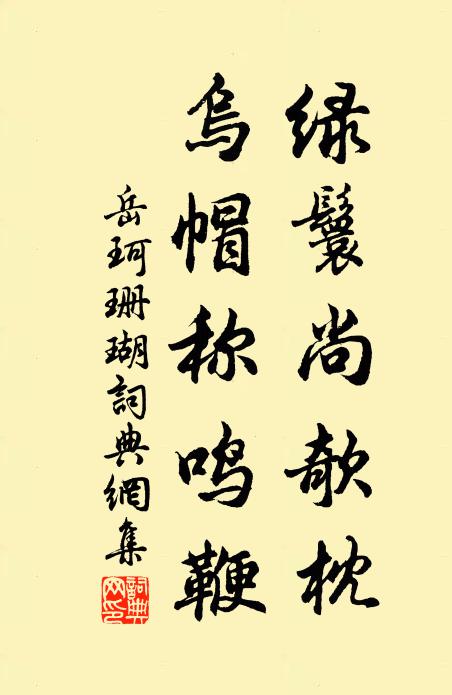 绿鬟尚欹枕
烏帽称鸣鞭
岳珂珊瑚詞典網集
詞典网印